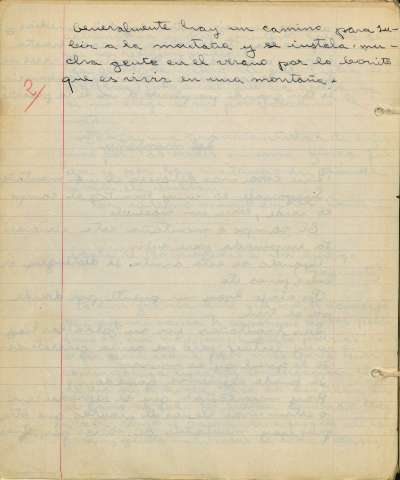 Generalmente hay un camino para su-
bir a la montaña y se instala mu-
cha gente en el verano por lo bonito
que es vivir en una montaña.
2